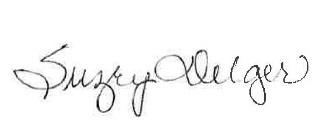 Suzry Delger